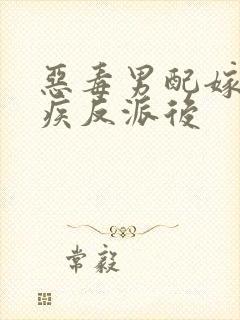 惡毒男配嫁
疾反派後
常毅